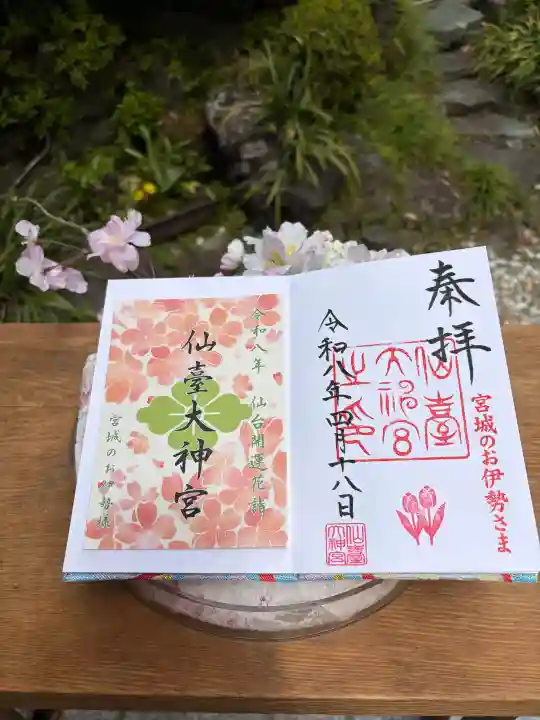 奉拝
宮城のお伊勢さま
仙臺
大神宮
之印
令和八年四月十八日
仙臺
大神宮
令和八年 仙台開運花詣
仙臺大神宮
宮城のお伊勢様